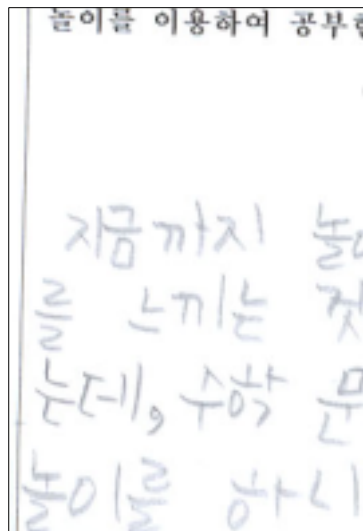 놀이를 이용하여 공부한
지금까지 놀이
를 느끼는 것
는데, 수학 문
놀이를 하니